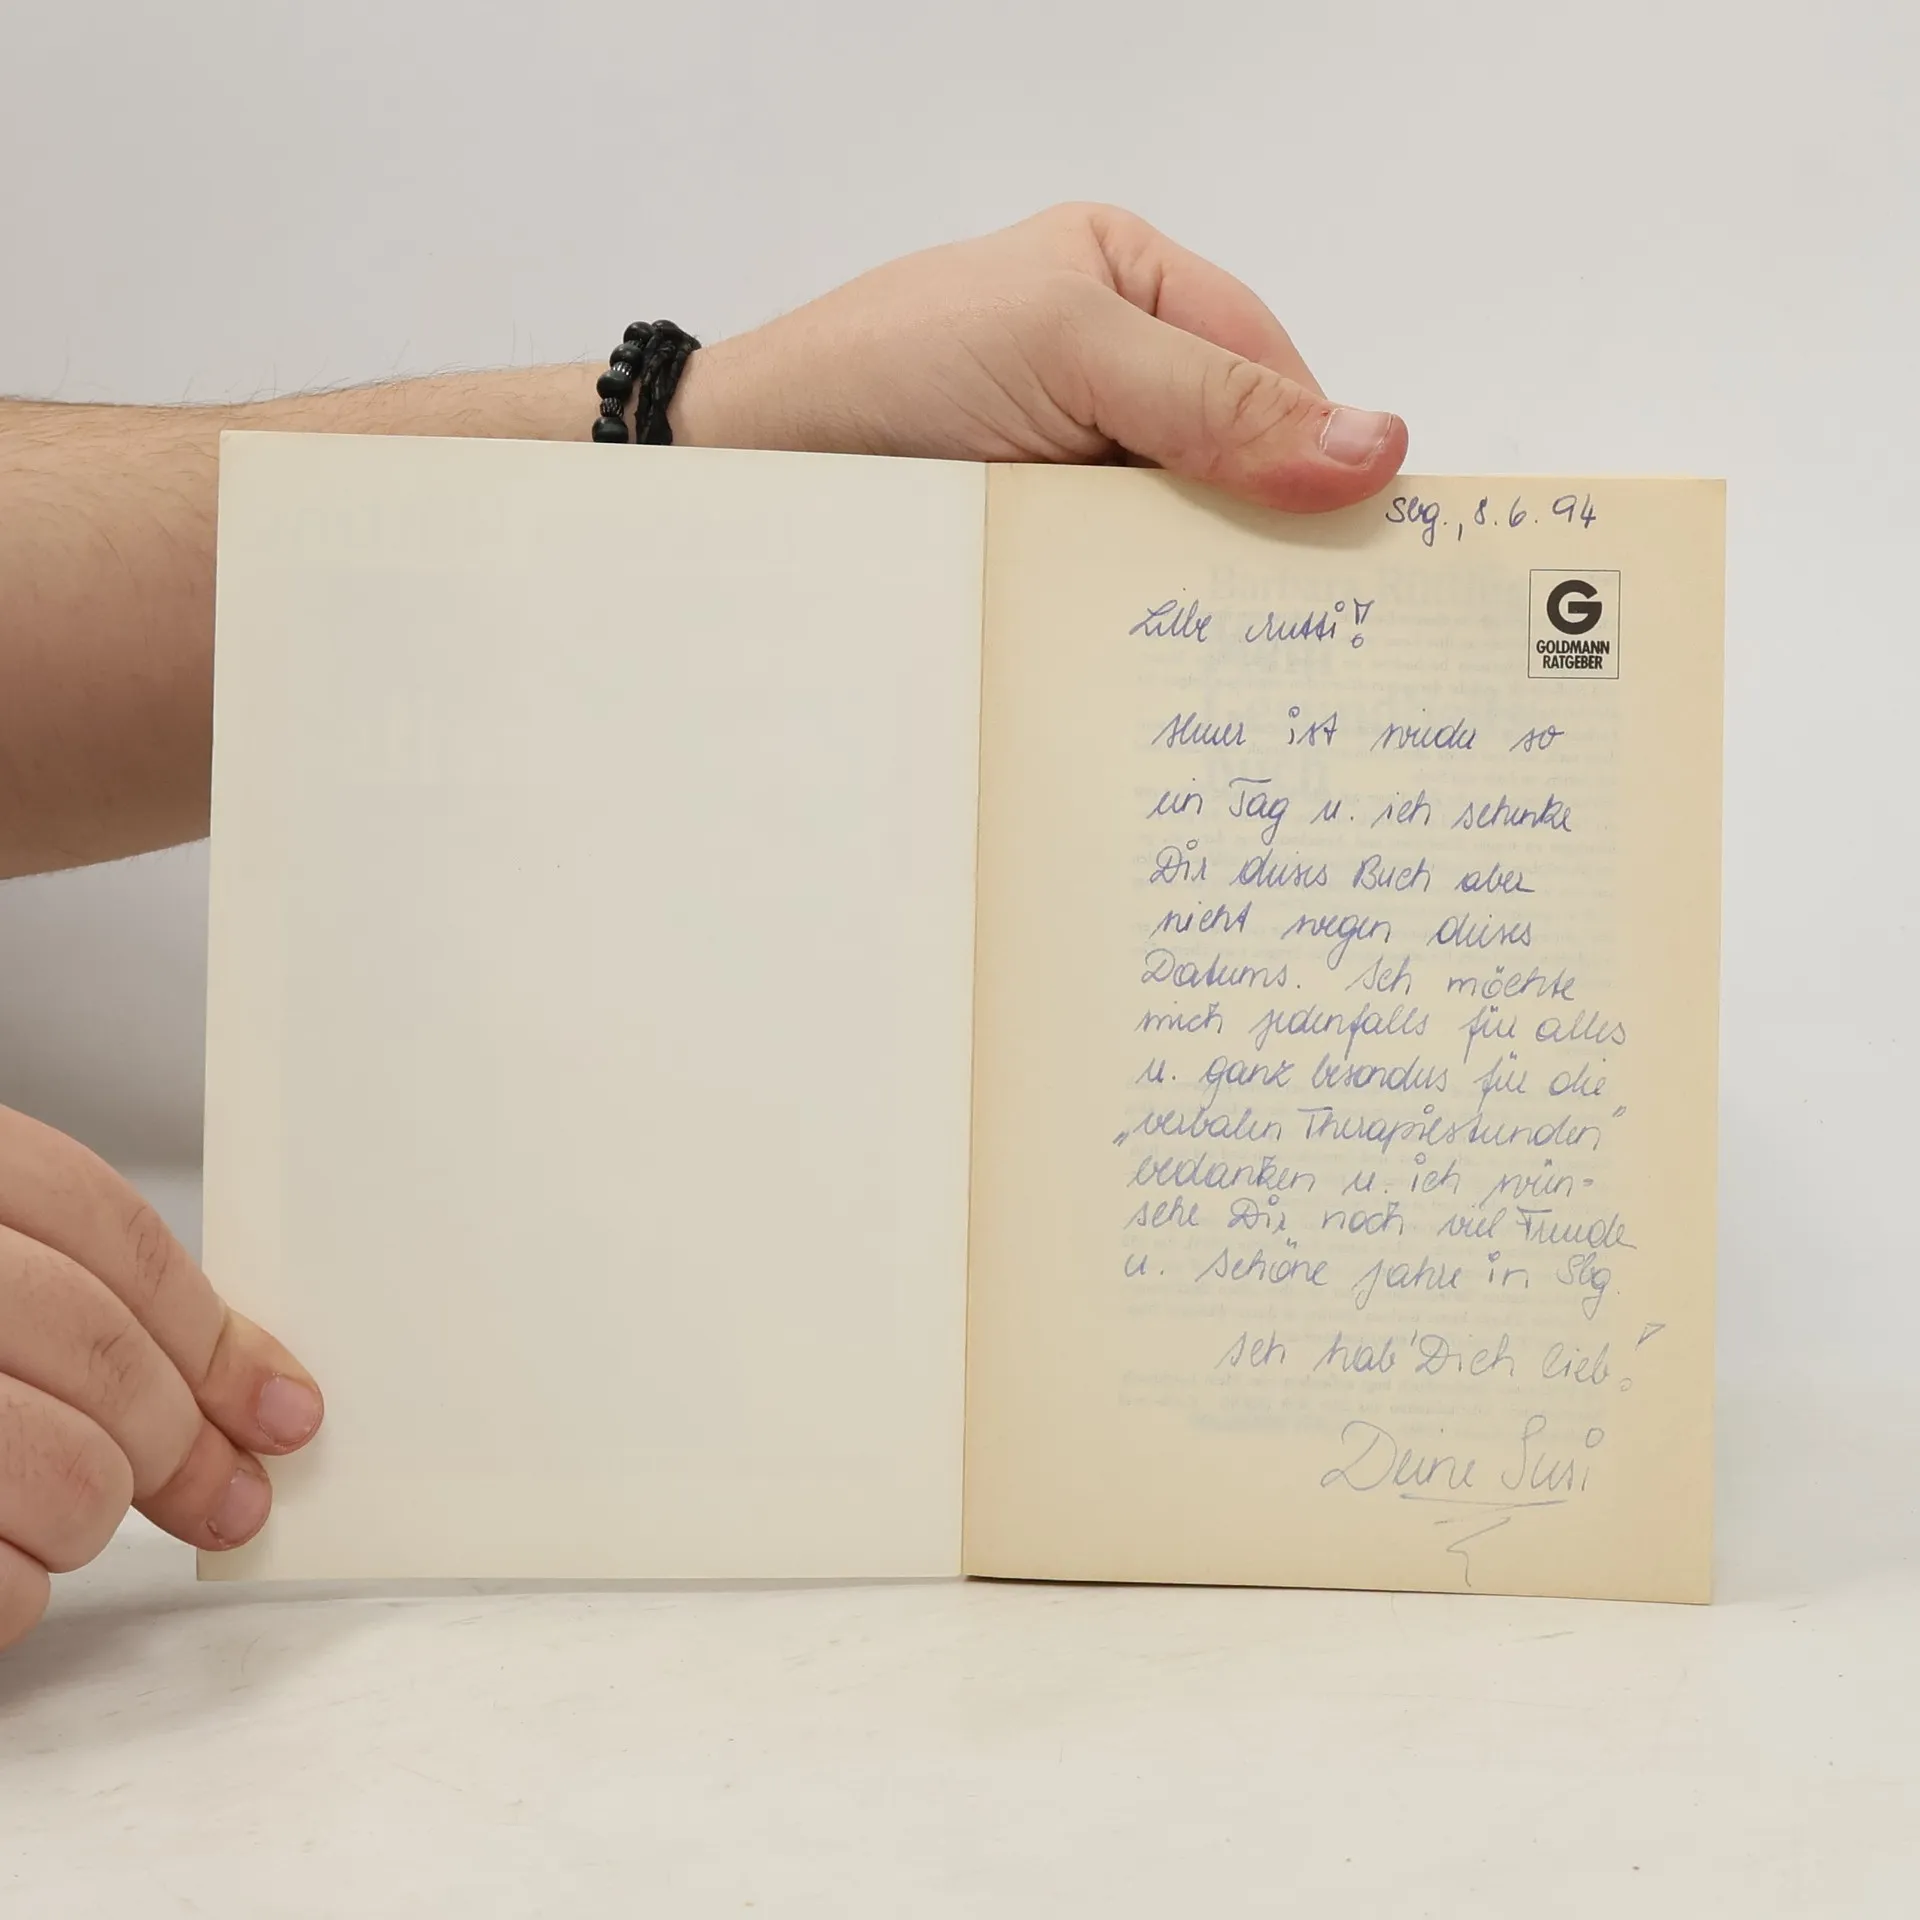 Sbg., 8.6.94
GOLDMANN
RATGEBER
Liebe Mutti!
Heuer ist wieder so
ein Tag u. ich schenke
Dir dieses Buch aber
nicht wegen dieses
Datums. Ich möchte
mich jedenfalls für alles
u. ganz besonders für die
„verbalen Therapiestunden"
bedanken u. ich wün=
sche Dir noch viel Freude
u. schöne Jahre in Sbg.
Ich hab' Dich lieb!
Deine Susi